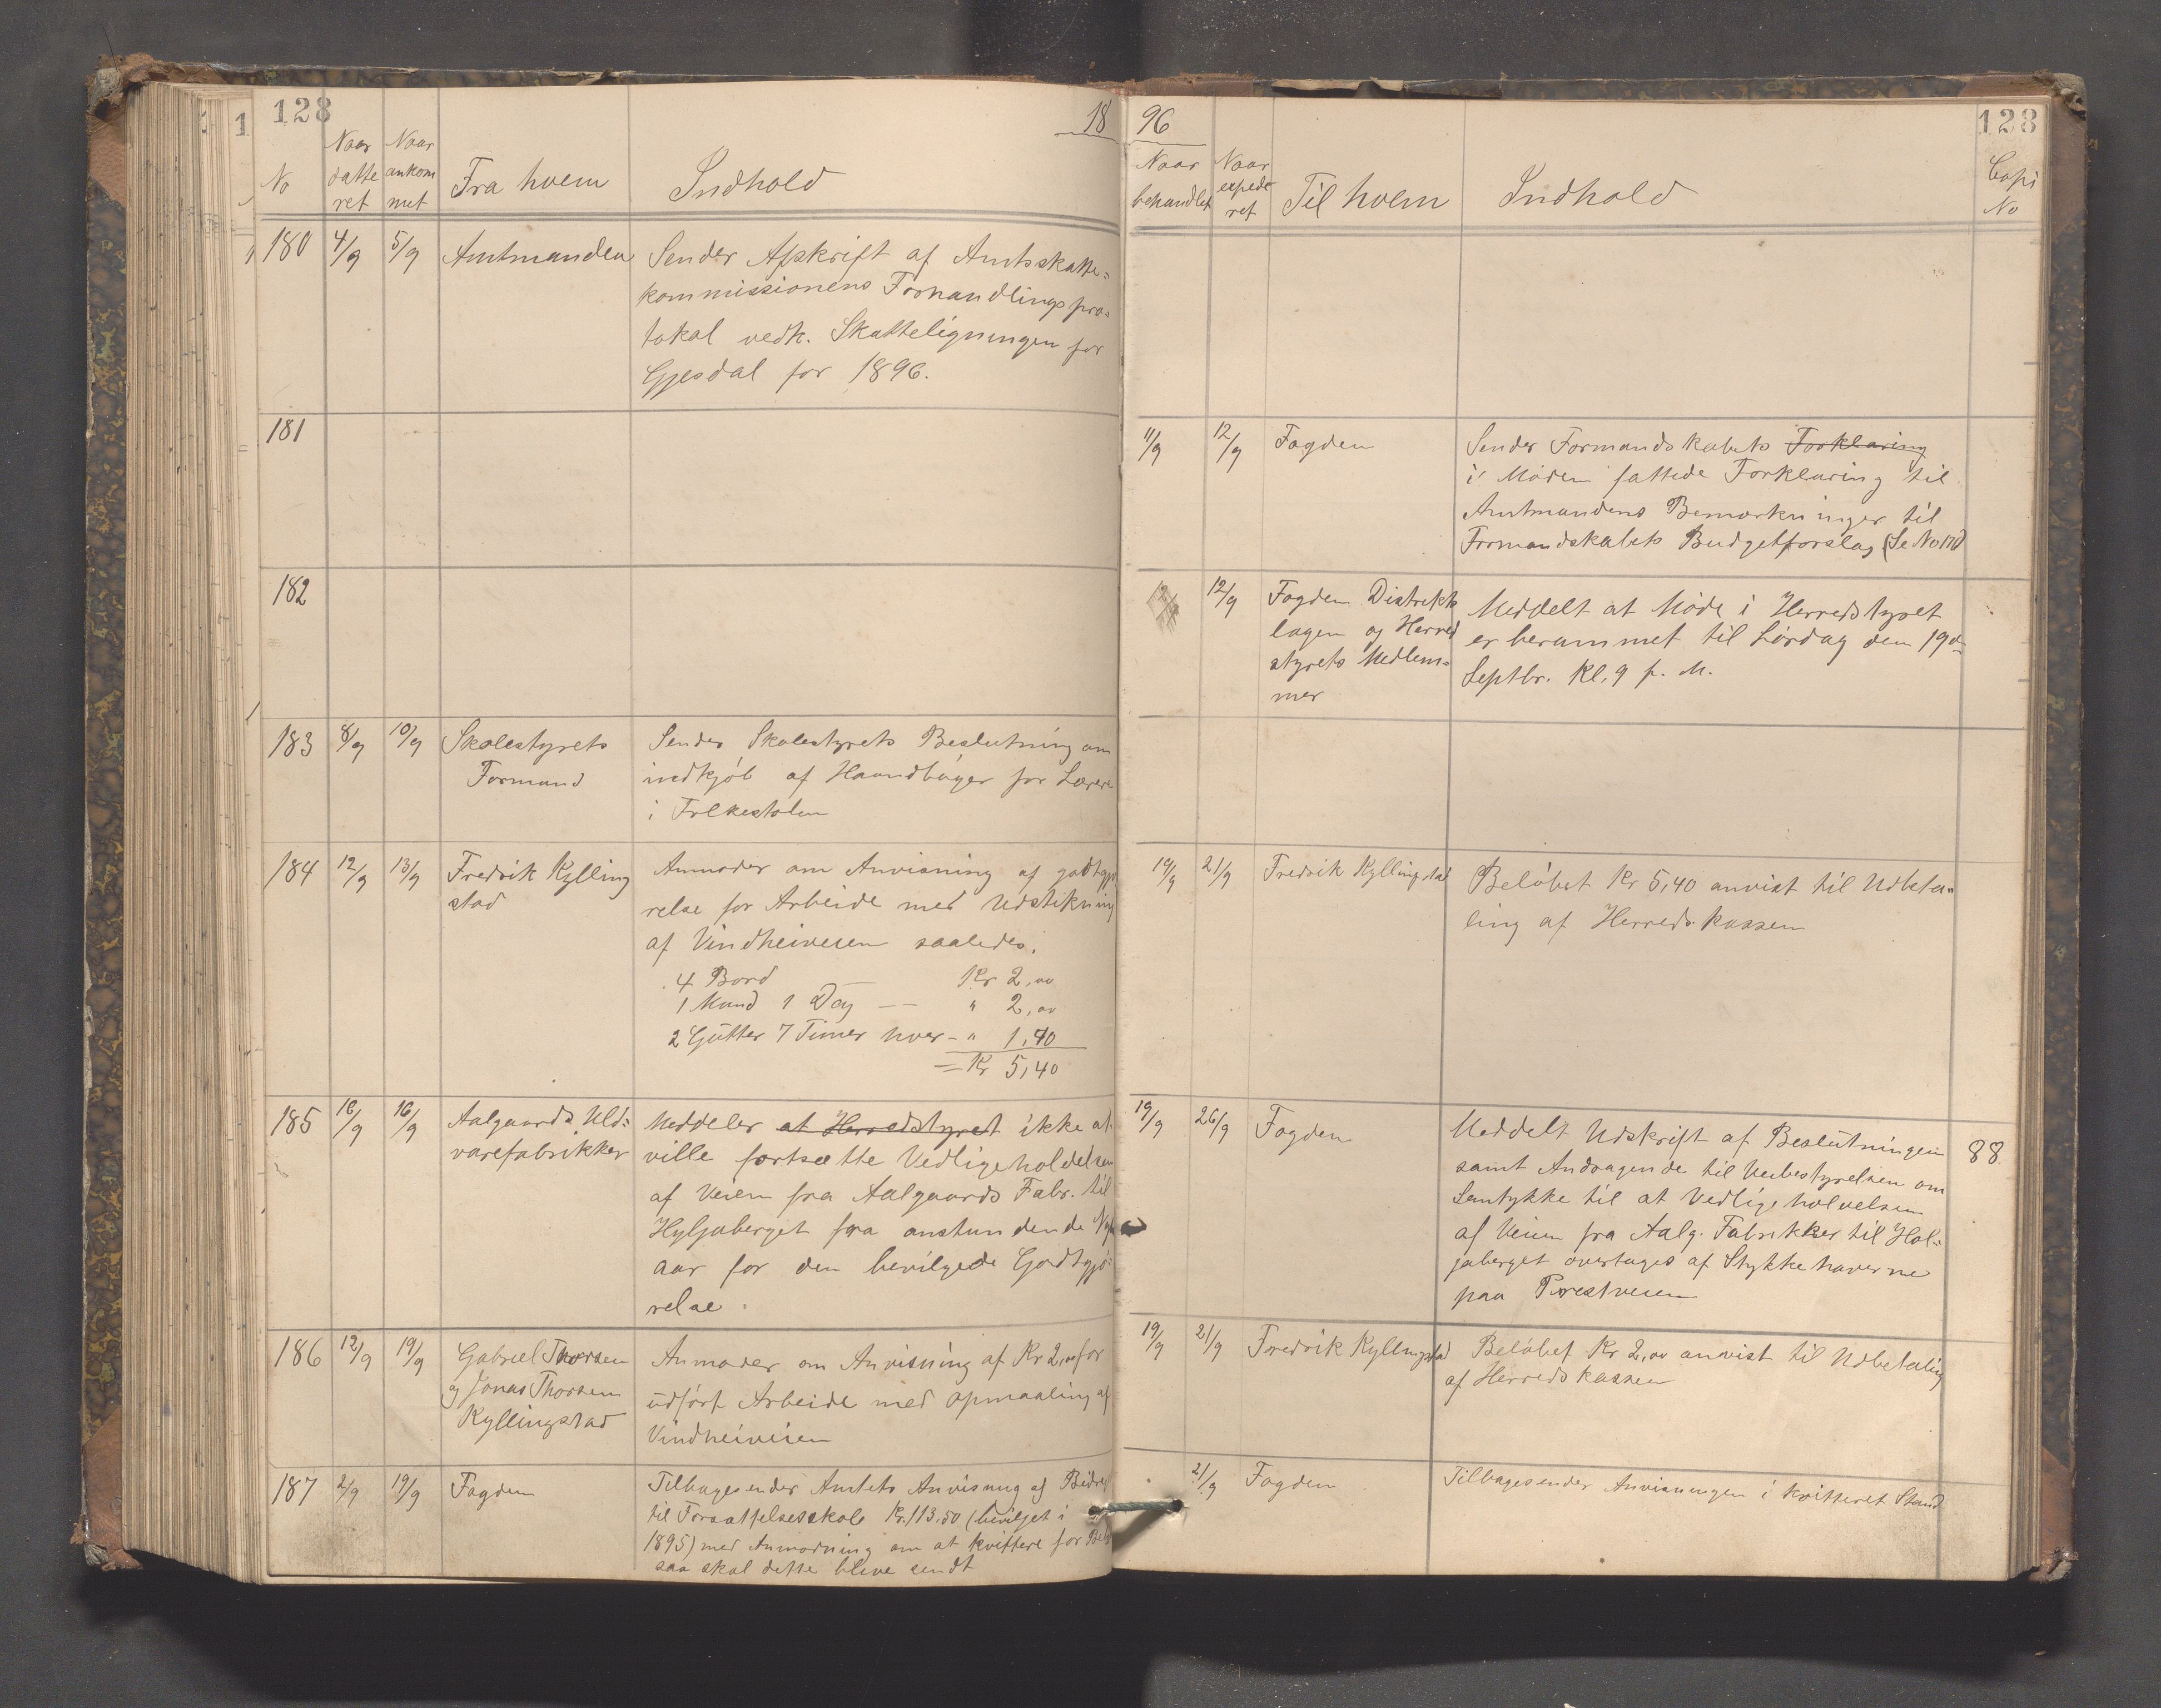 128
18
No
Naar datteret
Naar ankommet
Fra hvem
Indhold
180 4/9 5/9 Amtmanden
Sender Afskrift af Amtsskatte=
kommissionens Forhandlingspro=
tokol vedk. Skatteligningen for
Gjesdal for 1896.
181
182
183 8/9 10/9 Skolestyrets
Formand
Sender Skolestyrets Beslutning om
indkjøb af Haandbøger for Lærere
i Folkeskolen
184 12/9 13/9 Fredrik Kylling
stad
Anmoder om Anvisning af godtgjø
relse for Arbeide med Udstikning
af Vindheiveien saaledes.
4 Bord — Kr 2,00
1 Mand 1 Dag — — " 2,00
2 Gutter 7 Timer hver - " 1,40
= Kr 5,40
185 16/9 16/9 Aalgaards Uld=
varefabrikker
Meddeler at Herredstyret ikke at
ville fortsætte Vedligeholdelsen
af Veien fra Aalgaards Fabr. til
Hyljaberget fra anstundende Nyt
aar for den bevilgede Godtgjø=
relse.
186 12/9 19/9 Gabriel Thorsen
og Jonas Thorsen
Kyllingstad
Anmoder om Anvisning af Kr 2,00 for
udført Arbeide med opmaaling af
Vindheiveien
187 2/9 19/9 Fogden
Tilbagesender Amtets Anvisning af Bidrag
til Forsættelsesskole Kr. 113,50 (bevilget i
1895) med Anmodning om at kvittere for
saa skal dette blive sendt
96
128
Naar behandlet
Naar expederet
Til hvem
Indhold
Copi No
11/9 12/9 Fogden
Sender Formandskabets Forklaring
i Møden fattede Forklaring til
Amtmandens Bemærkninger til
Formandskabets Budgetforslag (Se No
12/9 Fogden Distrikts
lægen og Herred
styrets Medlem=
mer
Meddelt at Møde i Herredstyret
er berammet til Lørdag den 19de
Septbr. Kl. 9 f. M.
19/9 21/9 Fredrik Kyllingstad
Beløbet Kr 5,40 anvist til Udbeta=
ling af Herredskassen
19/9 26/9 Fogden
Meddelt Udskrift af Beslutningen 88
samt Andragende til Veibestyrelsen om
Samtykke til at Vedligeholdelsen
af Veien fra Aalg. Fabrikker til Hol=
jaberget overtages af Stykkehaverne
paa Prestveien
19/9 21/9 Fredrik Kyllingstad
Beløbet Kr 2,00 anvist til Udbetaling
af Herredskassen
21/9 Fogden
Tilbagesender Anvisningen i kvitteret Stand